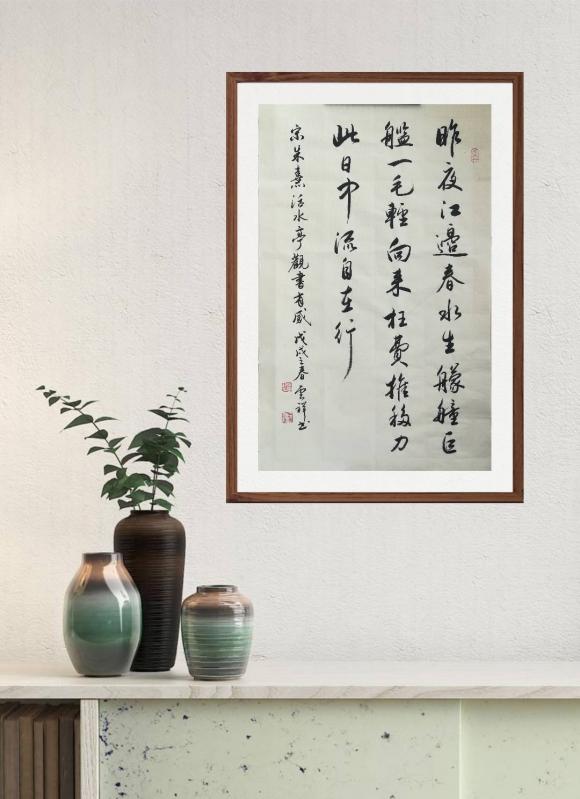 昨夜江邊春水生艨艟巨
艦一毛輕向来枉費推移力
此日中流自在行
宋朱熹活水亭觀書有感戊戌之春雲祥书